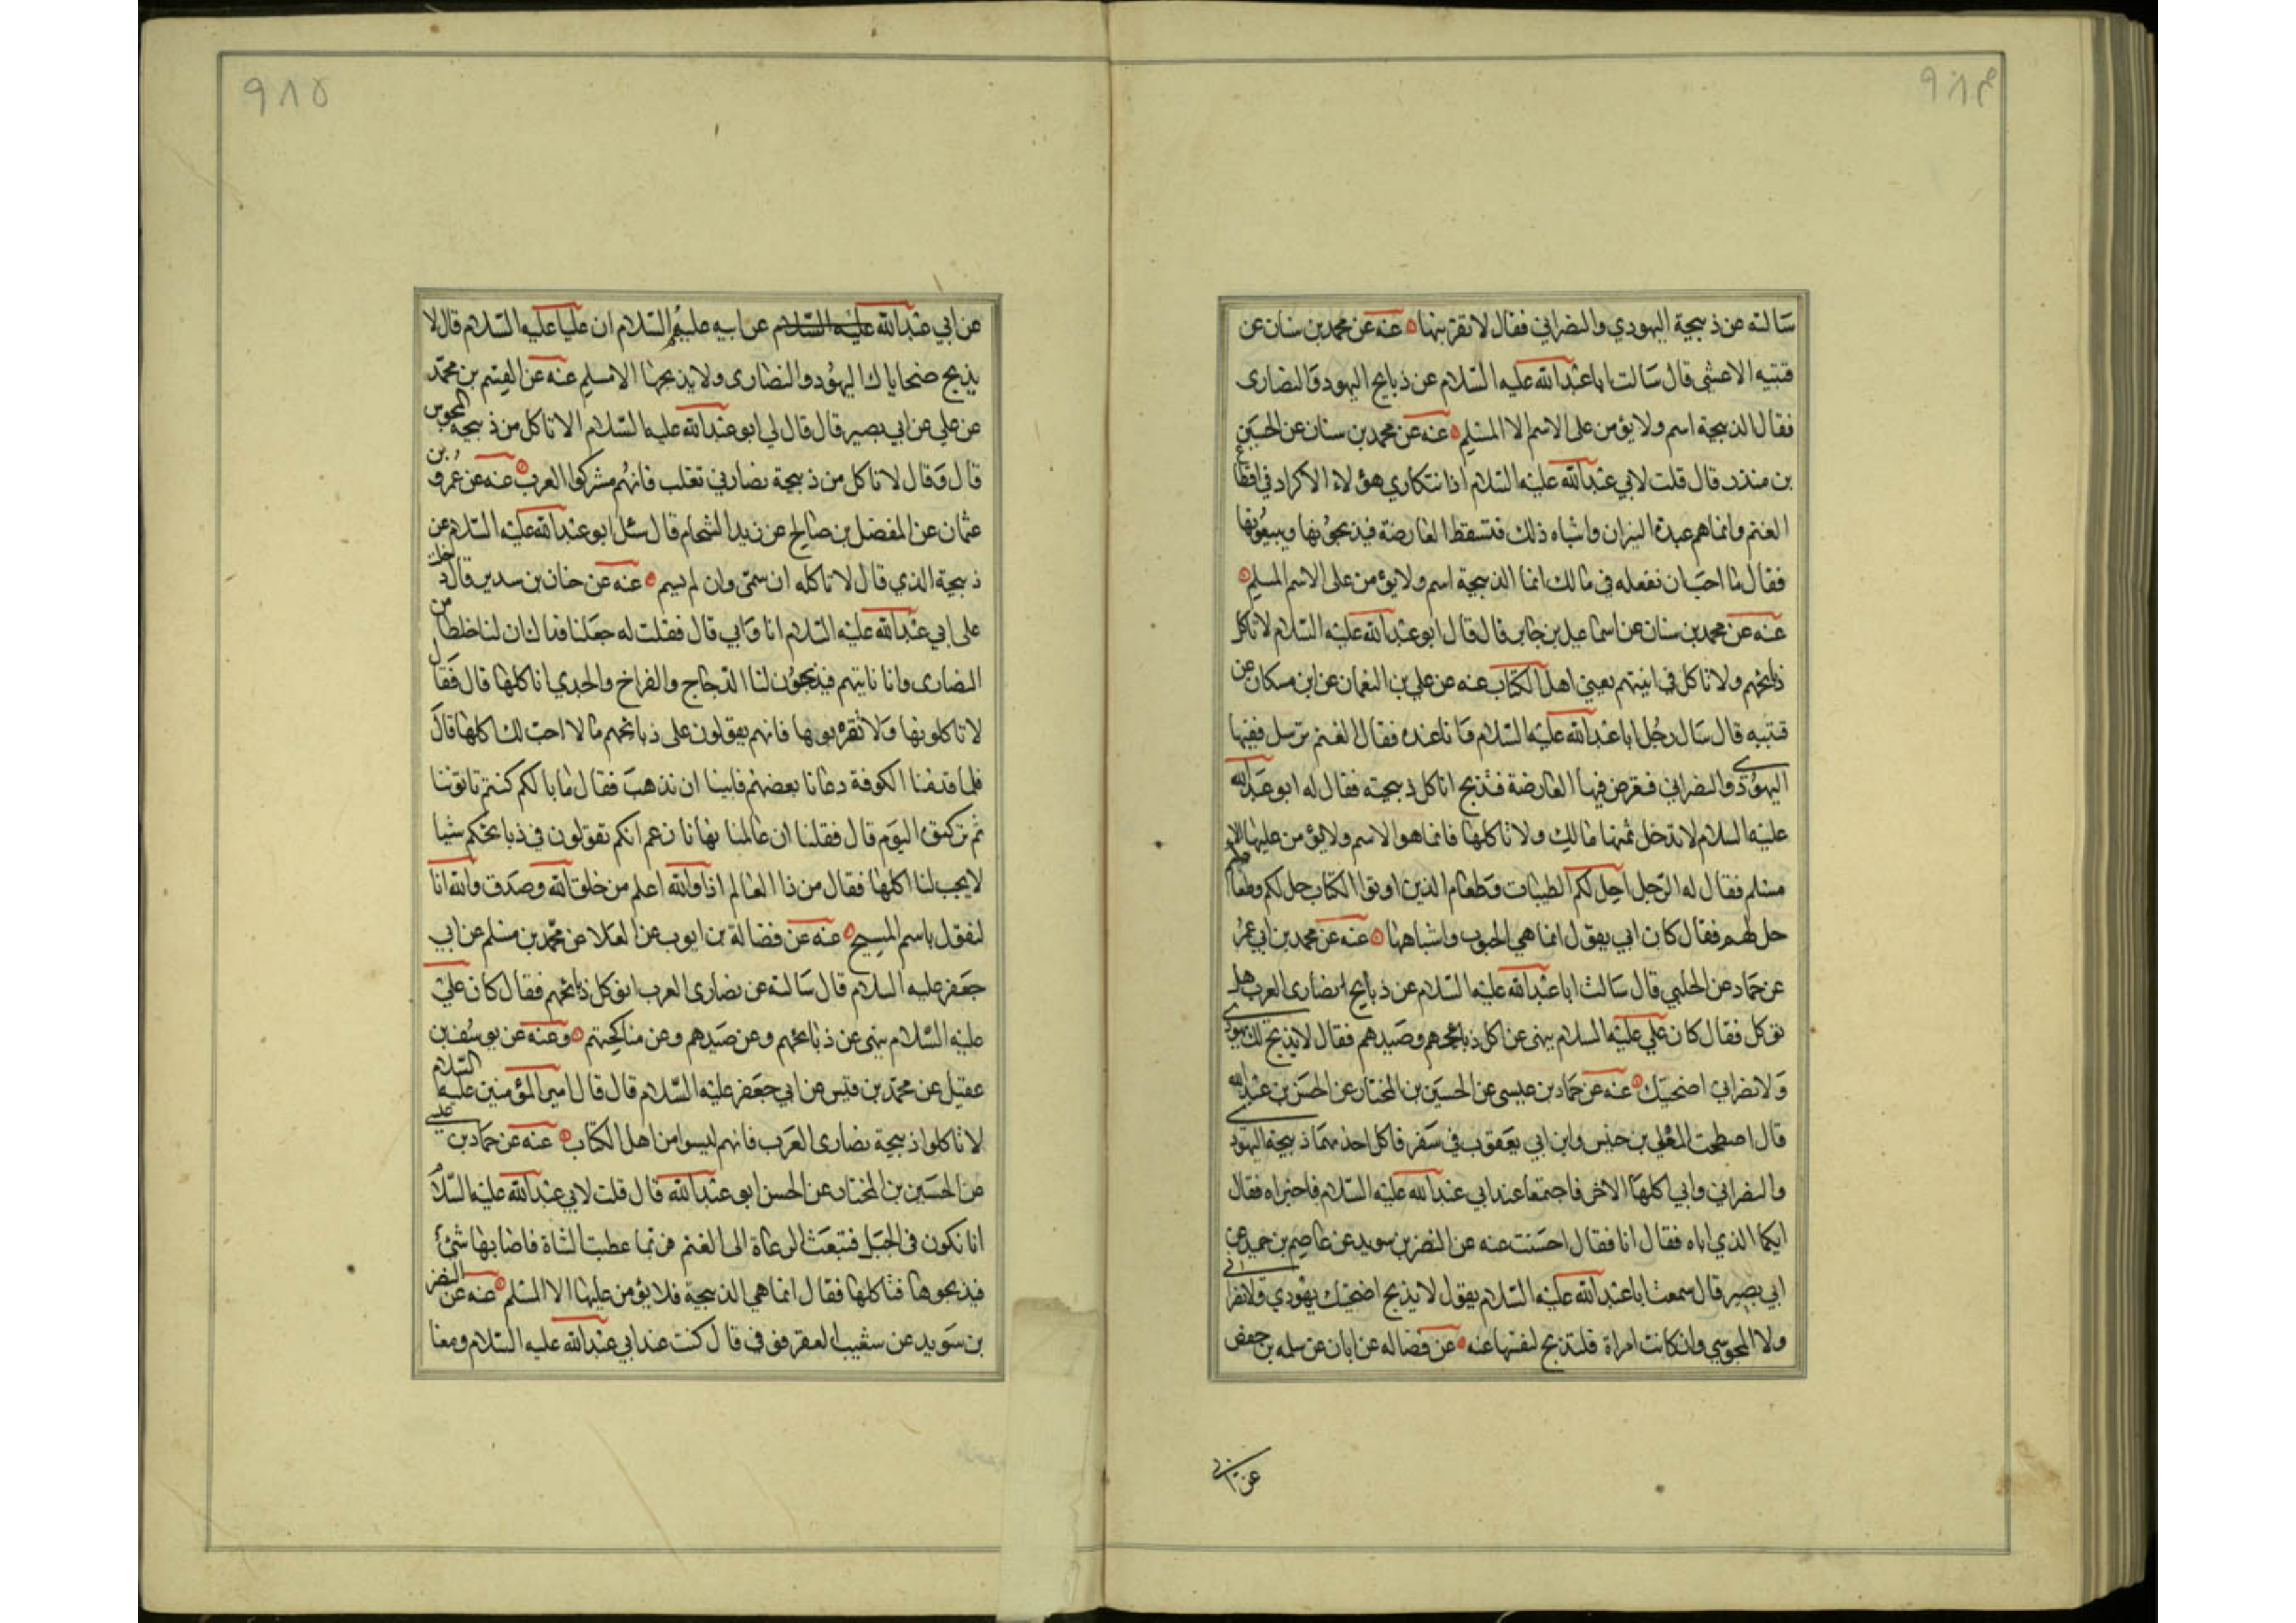 ٩٨٤
سالته عن ذبيحة اليهودي والنصراني فقال لا تقربنها عنه عن محمد بن سنان عن
قتيبه الاعشى قال سالت ابا عبد الله عليه السلام عن ذبايح اليهود والنصارى
فقال الذبيحة اسم ولا يؤمن على الاسم الا المسلم عنه عن محمد بن سنان عن الحسين
بن منذر قال قلت لابي عبد الله عليه السلام انا نتكاري هؤلاء الاكراد في اقطاع
الغنم وانما هم عبدة النيران واشباه ذلك فتسقط العارضة فيذبحونها ويبيعونها
فقال ما احب ان تفعله في مالك انما الذبيحة اسم ولا يؤمن على الاسم المسلم
عنه عن محمد بن سنان عن اسماعيل بن جابر قال قال ابو عبد الله عليه السلام لا تاكل
ذبائحهم ولا تاكل في انيتهم يعني اهل الكتاب عنه عن علي بن النعمان عن ابن مسكان عن
قتيبه قال سال رجل ابا عبد الله عليه السلام وانا عنده فقال الغنم ترسل ففيها
اليهودي والنصراني فتعرض فيها العارضة فتذبح اناكل ذبيحته فقال له ابو عبد الله
عليه السلام لا تدخل ثمنها مالك ولا تاكلها فانما هو الاسم ولا يؤمن عليها الا
مسلم فقال له الرجل احل لكم الطيبات وطعام الذين اوتوا الكتاب حل لكم وطعامكم
حل لهم فقال كان ابي يقول انما هي الحبوب واشباهها عنه عن محمد بن ابي عمر
عن حماد عن الحلبي قال سالت ابا عبد الله عليه السلام عن ذبايح نصارى العرب هل
توكل فقال كان علي عليه السلام ينهى عن اكل ذبائحهم وصيدهم فقال لا يذبح لك يهودي
ولا نصراني اضحيتك عنه عن حماد بن عيسى عن الحسين بن المختار عن الحسن بن عبد الله
قال اصطحب المعلى بن خنيس وابن ابي يعقوب في سفر فاكل احدهما ذبيحة اليهودي
والنصراني وابى اكلها الاخر فاجتمعا عند ابي عبد الله عليه السلام فاخبراه فقال
ايكما الذي اباه فقال انا فقال احسنت عنه عن النضر بن سويد عن عاصم بن حميد عن
ابي بصير قال سمعت ابا عبد الله عليه السلام يقول لا يذبح اضحيتك يهودي ولا نصراني
ولا المجوسي وان كانت امراة فلتذبح لنفسها عنه عن فضاله عن ابان عن سلمه بن جعفر
عن ابي
٩٨٥
عن ابي عبد الله عليه السلام عن ابيه عليهم السلام ان عليا عليه السلام قال لا
يذبح ضحاياك اليهود والنصارى ولا يذبحها الا مسلم عنه عن القسم بن محمد
عن علي عن ابي بصير قال قال لي ابو عبد الله عليه السلام الا تاكل من ذبيحة المجوس
قال وقال لا تاكل من ذبيحة نصاربني تغلب فانهم مشركوا العرب عنه عن عمرو بن
عثمان عن المفضل بن صالح عن زيد الشحام قال سئل ابو عبد الله عليه السلام عن
ذبيحة الذي قال لا تاكله ان سمى وان لم يسم عنه عن حنان بن سدير قال دخلت
على ابي عبد الله عليه السلام انا وابي قال فقلت له جعلنا فداك ان لنا خلطا من
النصارى وانا ناتيهم فيذبحون لنا الدجاج والفراخ والجدي اناكلها قال فقال
لا تاكلونها ولا تقربوها فانهم يقولون على ذبائحهم ما لا احب لك اكلها قال
فلما قدمنا الكوفة دعانا بعضهم فابينا ان نذهب فقال ما بالكم كنتم تاتونا
ثم تركتموه اليوم قال فقلنا ان عالمنا نهانا زعم انكم تقولون في ذبائحكم شيا
لا يجب لنا اكلها فقال من ذا العالم اذا والله اعلم من خلق الله وصدق والله انا
لنقول باسم المسيح عنه عن فضالة بن ايوب عن العلا عن محمد بن مسلم عن ابي
جعفر عليه السلام قال سالته عن نصارى العرب اتوكل ذبائحهم فقال كان علي
عليه السلام ينهى عن ذبائحهم وعن صيدهم وعن مناكحتهم وعنه عن يوسف بن
عقيل عن محمد بن قيس عن ابي جعفر عليه السلام قال قال امير المؤمنين عليه السلام
لا تاكلوا ذبيحة نصارى العرب فانهم ليسوا من اهل الكتاب عنه عن حماد بن عيسى
عن الحسين بن المختار عن الحسن ابو عبد الله قال قلت لابي عبد الله عليه السلام
انا نكون في الجبل فتبعث الرعاة الى الغنم فربما عطبت الشاة فاصابها شئ
فيذبحوها فناكلها فقال انما هي الذبيحة فلا يؤمن عليها الا المسلم عنه عن النضر
بن سويد عن شعيب العقرقوفي قال كنت عند ابي عبد الله عليه السلام ومعنا